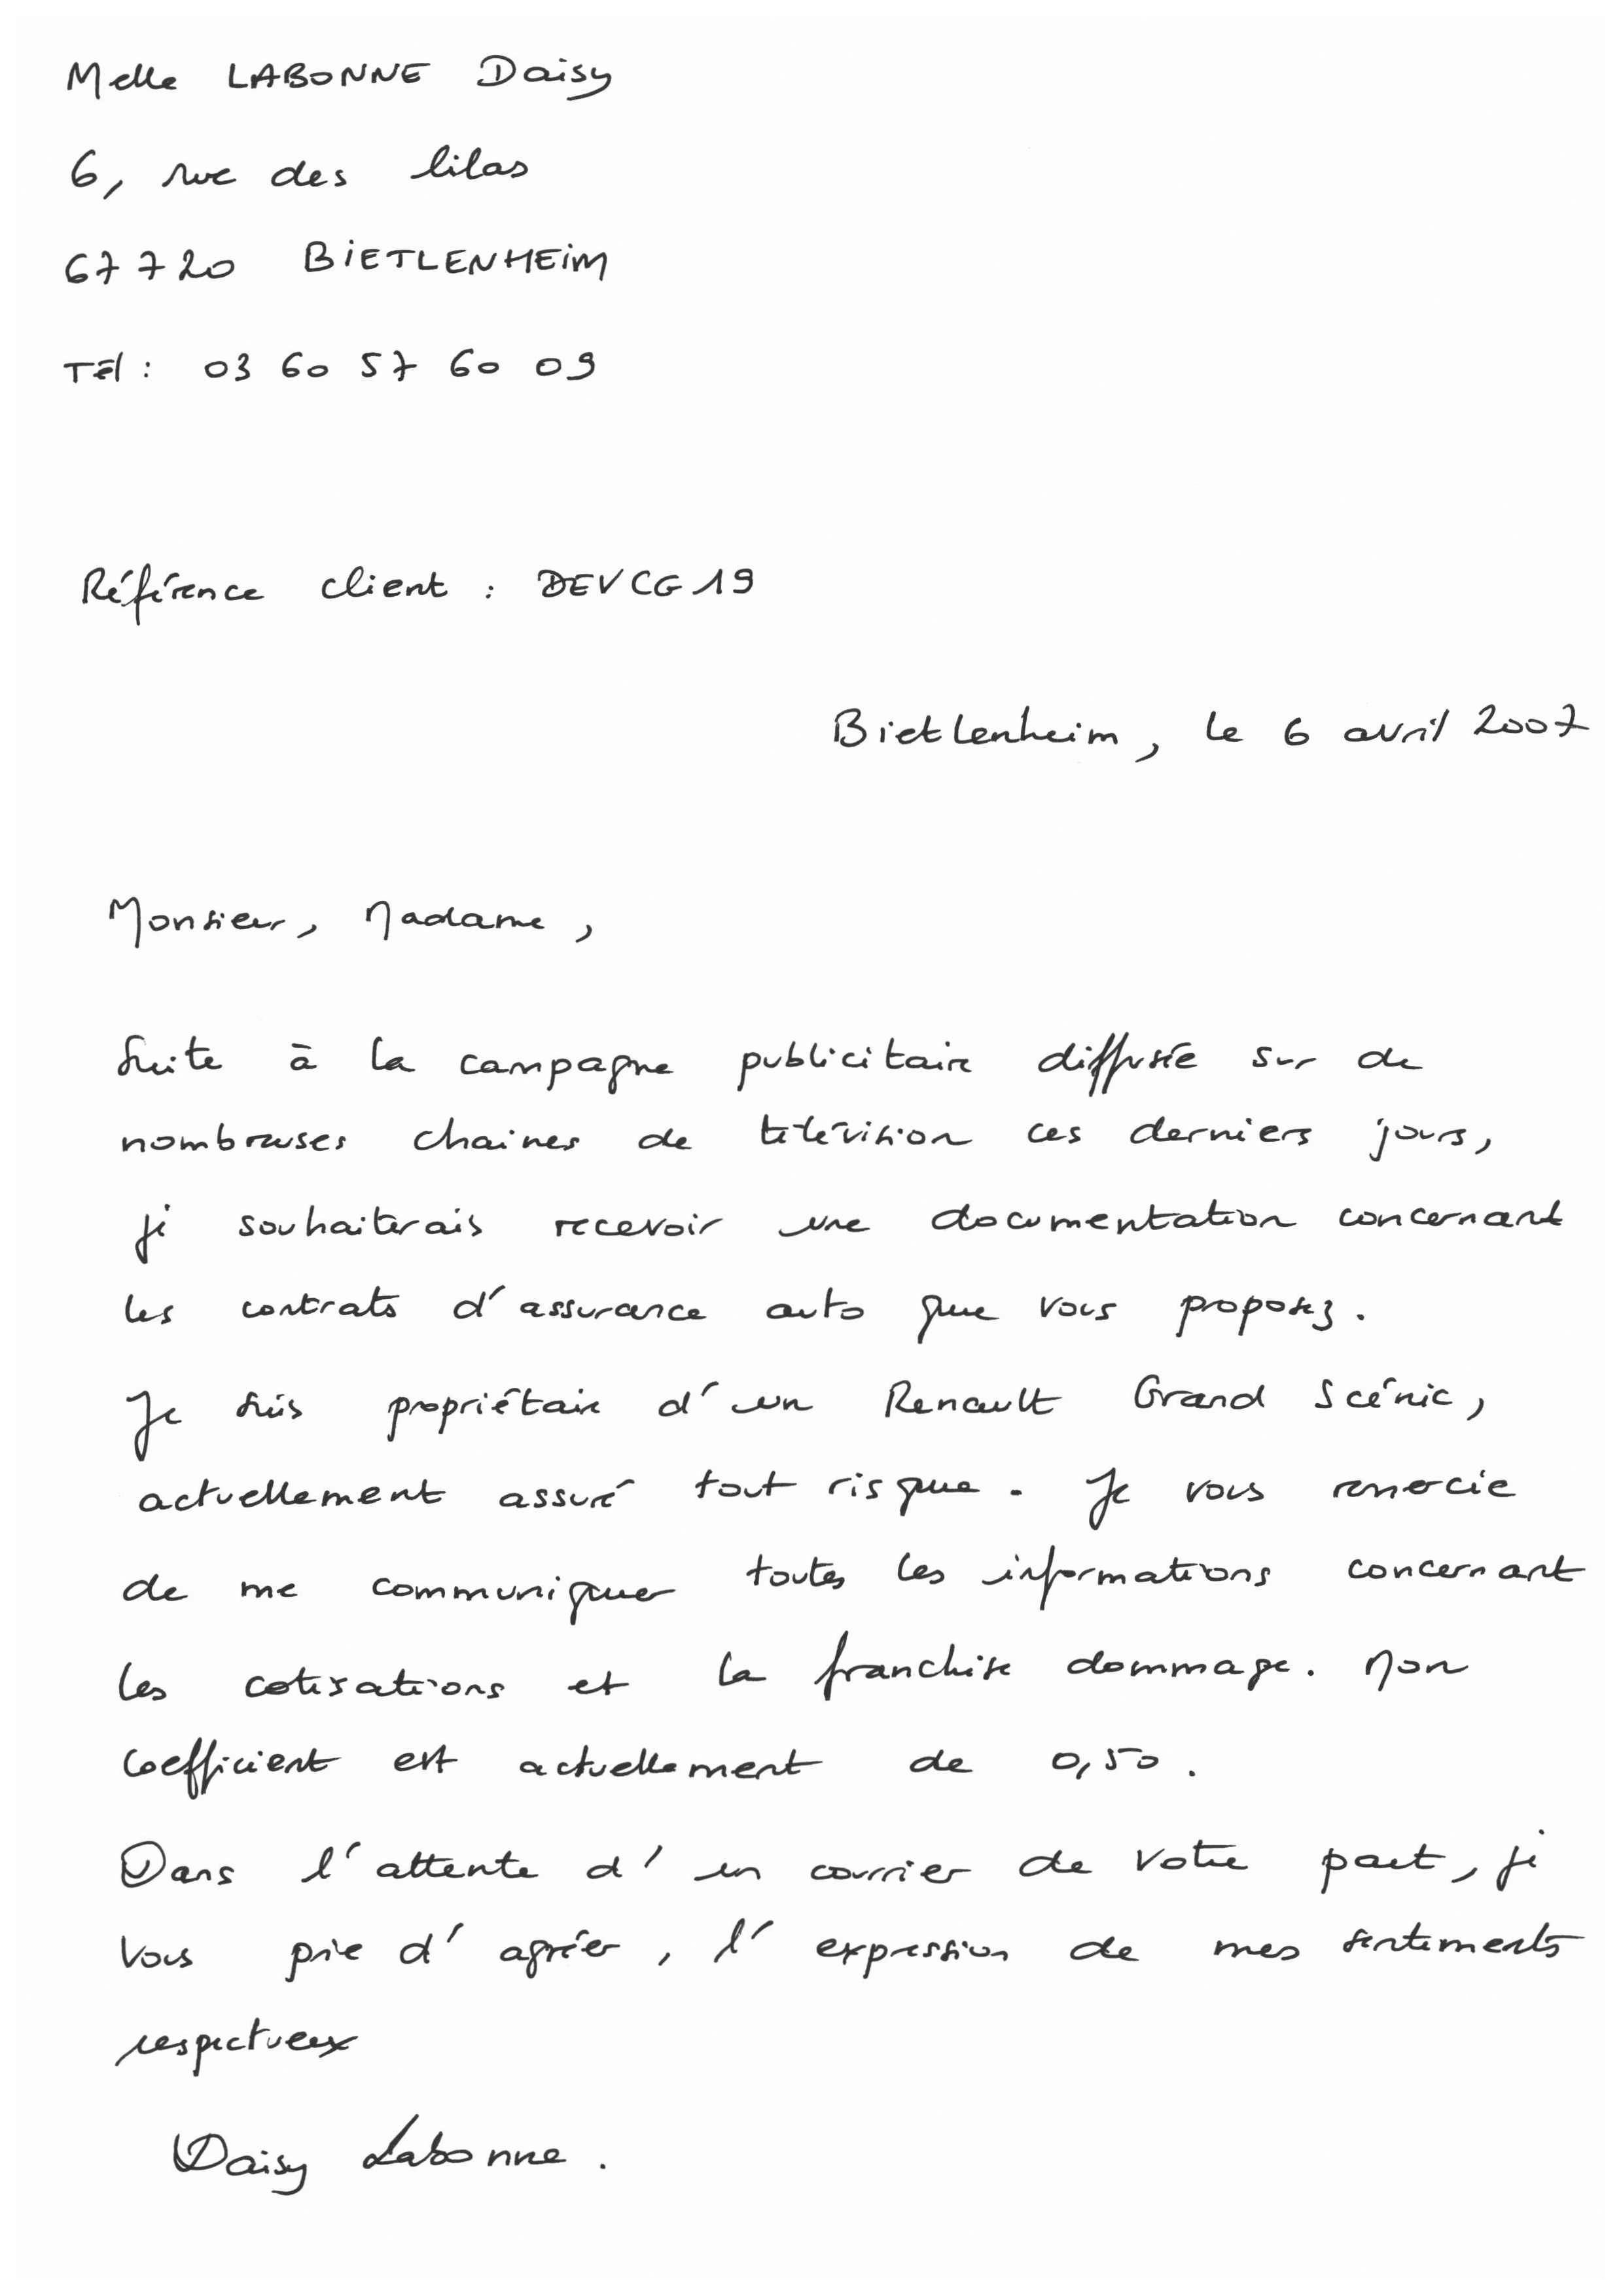 Melle LABONNE Daisy
6, rue des lilas
67720 BIETLENHEIM
Tél : 03 60 57 60 09
Référence client : DEVCG19
Bietlenheim, le 6 avril 2007
Monsieur, Madame,
Suite à la campagne publicitaire diffusée sur de
nombreuses chaines de télévision ces derniers jours,
je souhaiterais recevoir une documentation concernant
les contrats d'assurance auto que vous proposez.
Je suis propriétaire d'un Renault Grand Scénic,
actuellement assuré tout risque. Je vous remercie
de me communiquer toutes les informations concernant
les cotisations et la franchise dommage. Mon
coefficient est actuellement de 0,50.
Dans l'attente d'un courrier de votre part, je
vous prie d'agréer, l'expression de mes sentiments
respectueux
Daisy Labonne.